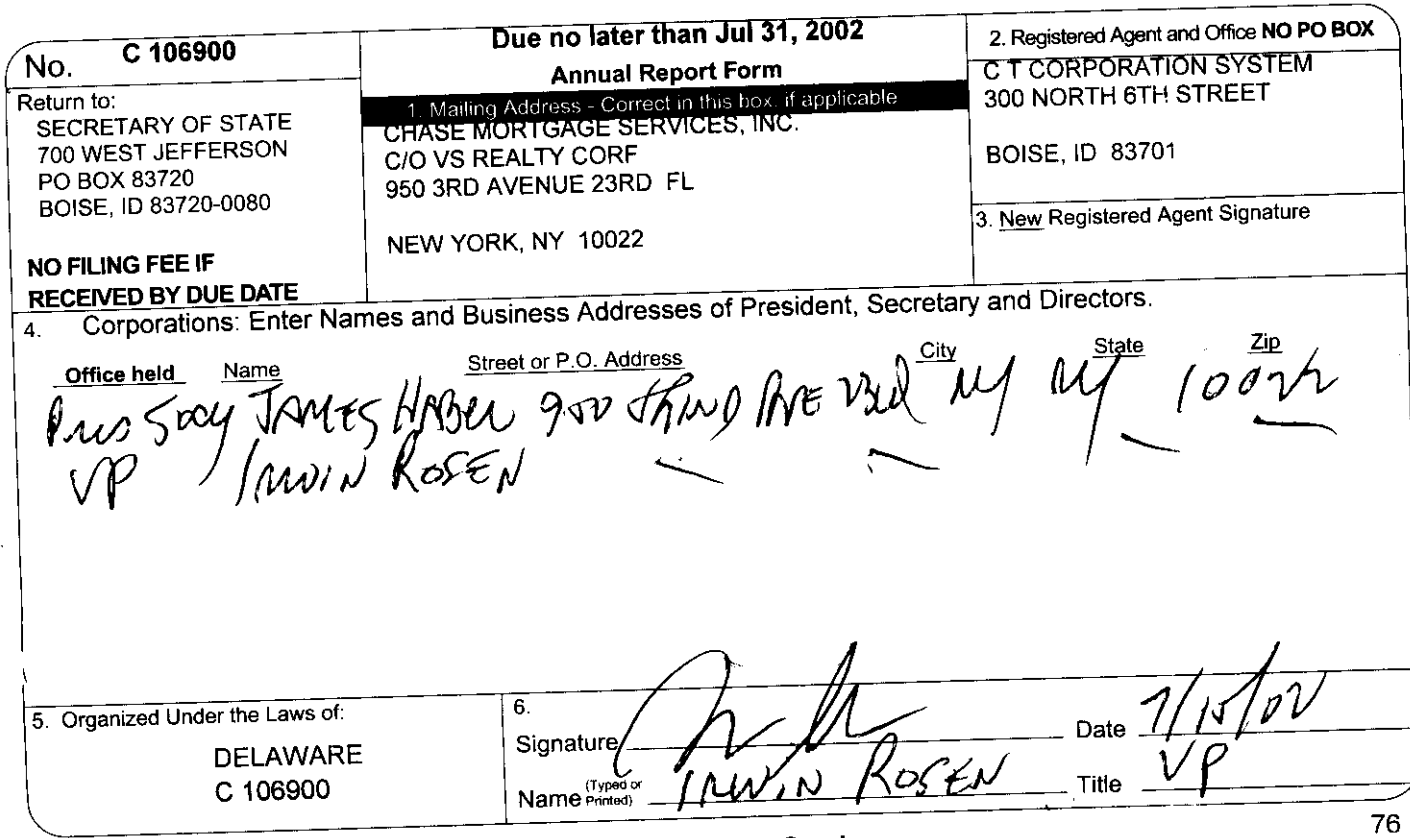 No. C 106900
Return to:
SECRETARY OF STATE
700 WEST JEFFERSON
PO BOX 83720
BOISE, ID 83720-0080
NO FILING FEE IF
RECEIVED BY DUE DATE
Due no later than Jul 31, 2002
Annual Report Form
1. Mailing Address - Correct in this box, if applicable
CHASE MORTGAGE SERVICES, INC.
C/O VS REALTY CORF
950 3RD AVENUE 23RD FL
NEW YORK, NY 10022
2. Registered Agent and Office NO PO BOX
C T CORPORATION SYSTEM
300 NORTH 6TH STREET
BOISE, ID 83701
3. New Registered Agent Signature
4. Corporations: Enter Names and Business Addresses of President, Secretary and Directors.
Office held Name Street or P.O. Address City State Zip
Pres Secy JAMES HABER 950 THIRD AVE 23rd NY NY 10022
VP IRWIN ROSEN
5. Organized Under the Laws of:
DELAWARE
C 106900
6.
Signature Date 7/15/02
Name (Typed or Printed) IRWIN ROSEN Title VP
76